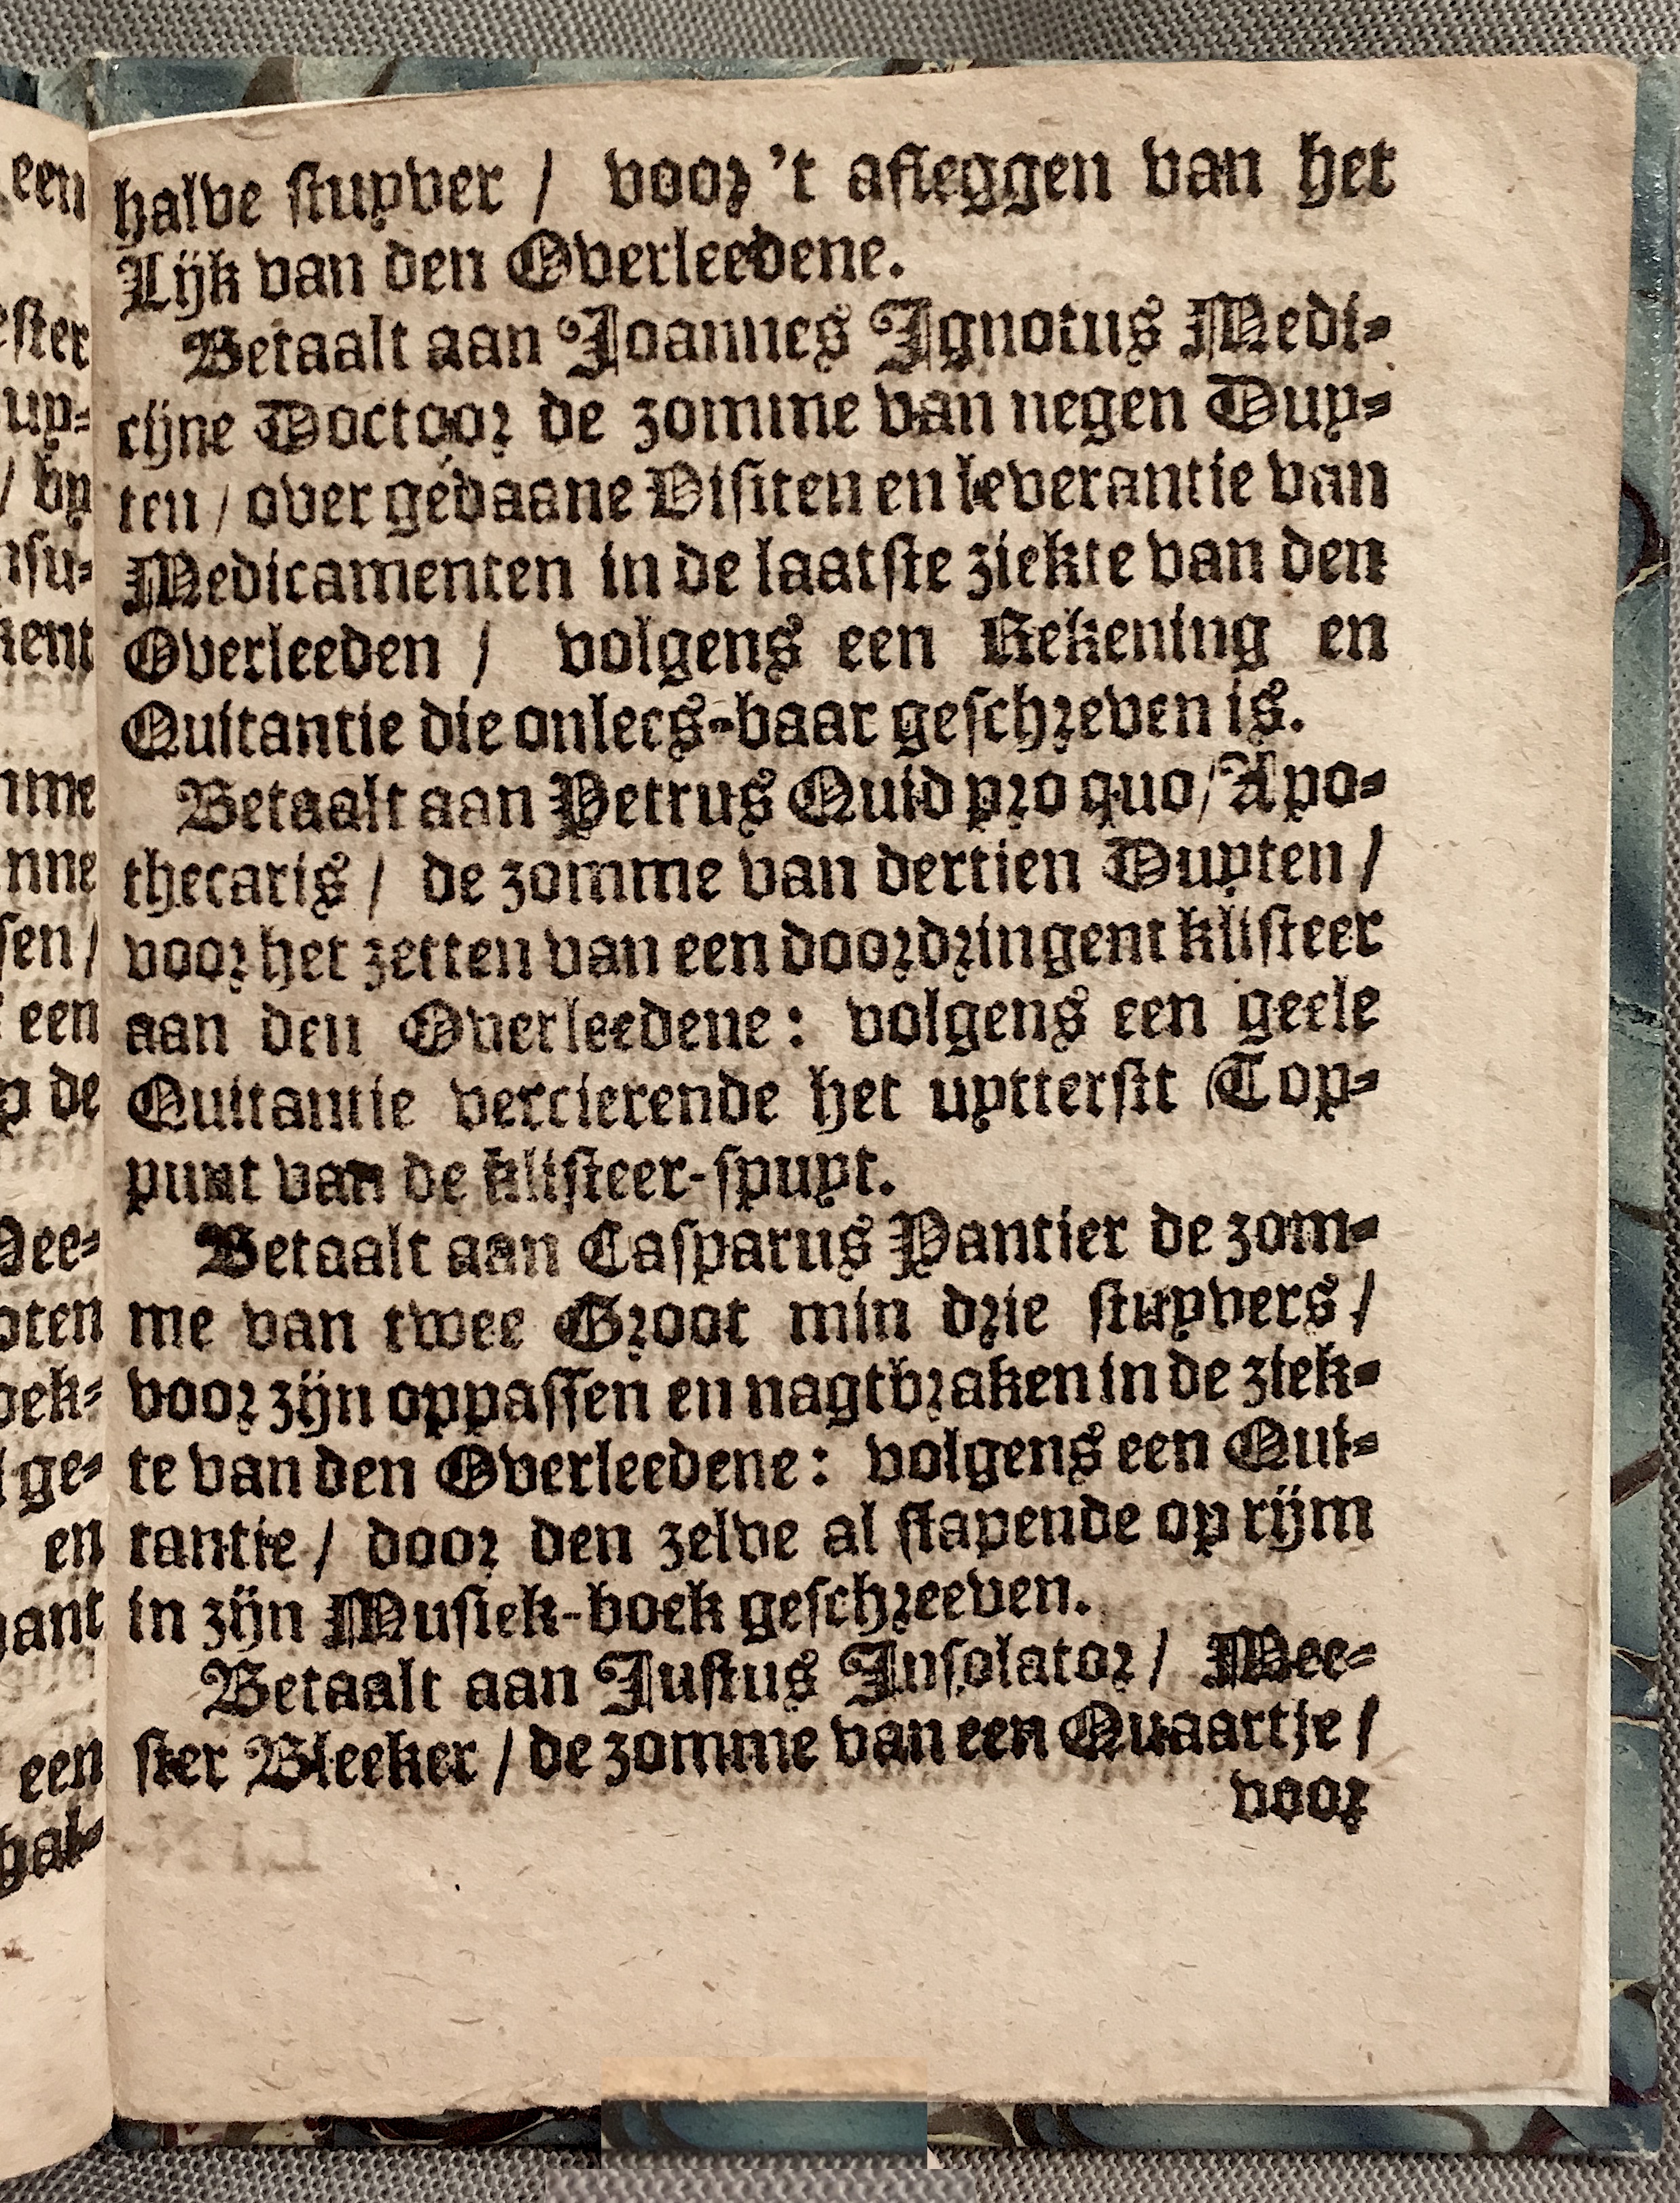 halve stuyver / voor 't afleggen van het
Lijk van den Overleedene.
Betaalt aan Joannes Ignotus Medi-
cijne Doctoor de zomme van negen Duy-
ten / over gedaane Visiten en leverantie van
Medicamenten in de laatste ziekte van den
Overleeden / volgens een Rekening en
Quitantie die onlees-baar geschreven is.
Betaalt aan Petrus Quid pro quo / Apo-
thecaris / de zomme van dertien Duyten /
voor het zetten van een doordringent klisteer
aan den Overleedene: volgens een geele
Quitantie vercierende het uytterste Top-
punt van de klisteer-spuyt.
Betaalt aan Casparus Pantier de zom-
me van twee Groot min drie stuyvers /
voor zijn oppassen en nagtbraken in de ziek-
te van den Overleedene: volgens een Qui-
tantie / door den zelve al slapende op rijm
in zijn Musiek-boek geschreeven.
Betaalt aan Justus Insolator / Mee-
ster Bleeker / de zomme van een Quaartje /
voor
een
ster
uy-
/ by
nsu-
ient
mme
nne
sen /
een
p de
Mee-
oten
oek-
ge-
en
gant
een
hal-